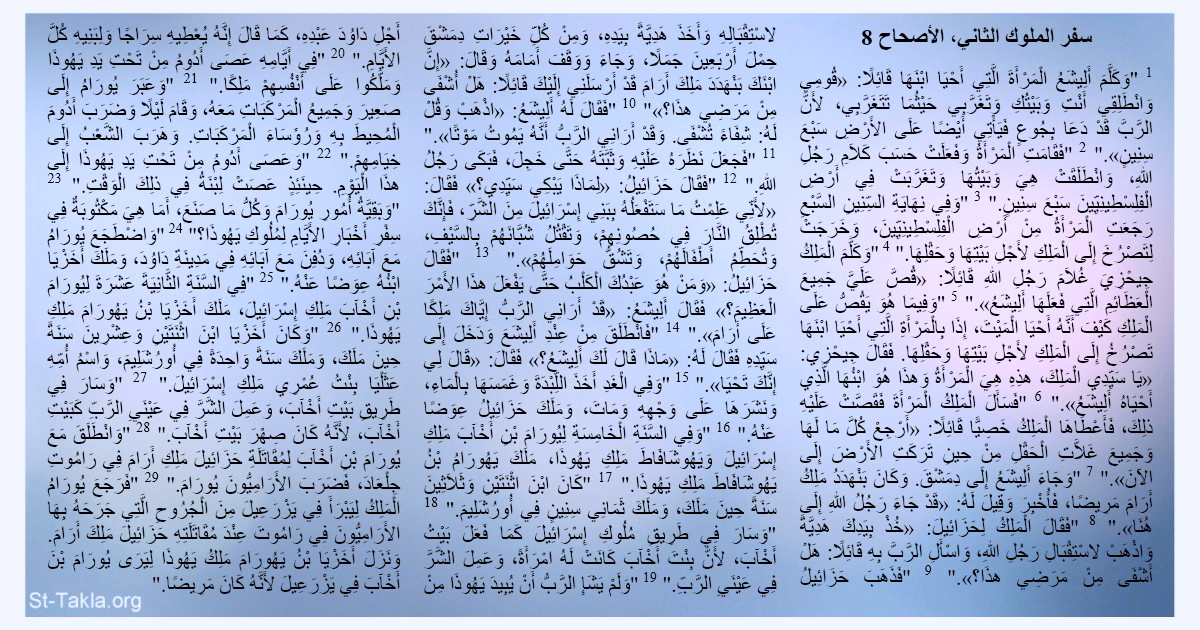 سفر الملوك الثاني، الأصحاح 8
1 "وَكَلَّمَ أَلِيشَعُ الْمَرْأَةَ الَّتِي أَحْيَا ابْنَهَا قَائِلاً: «قُومِي
وَانْطَلِقِي أَنْتِ وَبَيْتُكِ وَتَغَرَّبِي حَيْثُمَا تَتَغَرَّبِي، لأَنَّ
الرَّبَّ قَدْ دَعَا بِجُوعٍ فَيَأْتِي أَيْضًا عَلَى الأَرْضِ سَبْعَ
سِنِينٍ»." 2 "فَقَامَتِ الْمَرْأَةُ وَفَعَلَتْ حَسَبَ كَلاَمِ رَجُلِ
اللهِ، وَانْطَلَقَتْ هِيَ وَبَيْتُهَا وَتَغَرَّبَتْ فِي أَرْضِ
الْفِلِسْطِينِيِّينَ سَبْعَ سِنِينٍ." 3 "وَفِي نِهَايَةِ السِّنِينِ السَّبْعِ
رَجَعَتِ الْمَرْأَةُ مِنْ أَرْضِ الْفِلِسْطِينِيِّينَ، وَخَرَجَتْ
لِتَصْرُخَ إِلَى الْمَلِكِ لأَجْلِ بَيْتِهَا وَحَقْلِهَا." 4 "وَكَلَّمَ الْمَلِكُ
جِيحْزِيَ غُلاَمَ رَجُلِ اللهِ قَائِلاً: «قُصَّ عَلَيَّ جَمِيعَ
الْعَظَائِمِ الَّتِي فَعَلَهَا أَلِيشَعُ»." 5 "وَفِيمَا هُوَ يَقُصُّ عَلَى
الْمَلِكِ كَيْفَ أَنَّهُ أَحْيَا الْمَيْتَ، إِذَا بِالْمَرْأَةِ الَّتِي أَحْيَا ابْنَهَا
تَصْرُخُ إِلَى الْمَلِكِ لأَجْلِ بَيْتِهَا وَحَقْلِهَا. فَقَالَ جِيحْزِي:
«يَا سَيِّدِي الْمَلِكَ، هذِهِ هِيَ الْمَرْأَةُ وَهذَا هُوَ ابْنُهَا الَّذِي
أَحْيَاهُ أَلِيشَعُ»." 6 "فَسَأَلَ الْمَلِكُ الْمَرْأَةَ فَقَصَّتْ عَلَيْهِ
ذلِكَ، فَأَعْطَاهَا الْمَلِكُ خَصِيًّا قَائِلاً: «أَرْجِعْ كُلَّ مَا لَهَا
وَجَمِيعَ غَلاَّتِ الْحَقْلِ مِنْ حِينِ تَرَكَتِ الأَرْضَ إِلَى
الآنَ»." 7 "وَجَاءَ أَلِيشَعُ إِلَى دِمَشْقَ. وَكَانَ بَنْهَدَدُ مَلِكُ
أَرَامَ مَرِيضًا، فَأُخْبِرَ وَقِيلَ لَهُ: «قَدْ جَاءَ رَجُلُ اللهِ إِلَى
هُنَا»." 8 "فَقَالَ الْمَلِكُ لِحَزَائِيلَ: «خُذْ بِيَدِكَ هَدِيَّةً
وَاذْهَبْ لاسْتِقْبَالِ رَجُلِ اللهِ، وَاسْأَلِ الرَّبَّ بِهِ قَائِلاً: هَلْ
أَشْفَى مِنْ مَرَضِي هذَا؟»." 9 "فَذَهَبَ حَزَائِيلُ
لاسْتِقْبَالِهِ وَأَخَذَ هَدِيَّةً بِيَدِهِ، وَمِنْ كُلِّ خَيْرَاتِ دِمَشْقَ
حِمْلَ أَرْبَعِينَ جَمَلاً، وَجَاءَ وَوَقَفَ أَمَامَهُ وَقَالَ: «إِنَّ
ابْنَكَ بَنْهَدَدَ مَلِكَ أَرَامَ قَدْ أَرْسَلَنِي إِلَيْكَ قَائِلاً: هَلْ أُشْفَى
مِنْ مَرَضِي هذَا؟»" 10 "فَقَالَ لَهُ أَلِيشَعُ: «اذْهَبْ وَقُلْ
لَهُ: شِفَاءً تُشْفَى. وَقَدْ أَرَانِي الرَّبُّ أَنَّهُ يَمُوتُ مَوْتًا»."
11 "فَجَعَلَ نَظَرَهُ عَلَيْهِ وَثَبَّتَهُ حَتَّى خَجِلَ، فَبَكَى رَجُلُ
اللهِ." 12 "فَقَالَ حَزَائِيلُ: «لِمَاذَا يَبْكِي سَيِّدِي؟» فَقَالَ:
«لأَنِّي عَلِمْتُ مَا سَتَفْعَلُهُ بِبَنِي إِسْرَائِيلَ مِنَ الشَّرِّ، فَإِنَّكَ
تُطْلِقُ النَّارَ فِي حُصُونِهِمْ، وَتَقْتُلُ شُبَّانَهُمْ بِالسَّيْفِ،
وَتُحَطِّمُ أَطْفَالَهُمْ، وَتَشُقُّ حَوَامِلَهُمْ»." 13 "فَقَالَ
حَزَائِيلُ: «وَمَنْ هُوَ عَبْدُكَ الْكَلْبُ حَتَّى يَفْعَلَ هذَا الأَمْرَ
الْعَظِيمَ؟» فَقَالَ أَلِيشَعُ: «قَدْ أَرَانِي الرَّبُّ إِيَّاكَ مَلِكًا
عَلَى أَرَامَ»." 14 "فَانْطَلَقَ مِنْ عِنْدِ أَلِيشَعَ وَدَخَلَ إِلَى
سَيِّدِهِ فَقَالَ لَهُ: «مَاذَا قَالَ لَكَ أَلِيشَعُ؟» فَقَالَ: «قَالَ لِي
إِنَّكَ تَحْيَا»." 15 "وَفِي الْغَدِ أَخَذَ اللِّبْدَةَ وَغَمَسَهَا بِالْمَاءِ،
وَنَشَرَهَا عَلَى وَجْهِهِ وَمَاتَ، وَمَلَكَ حَزَائِيلُ عِوَضًا
عَنْهُ." 16 "وَفِي السَّنَةِ الْخَامِسَةِ لِيُورَامَ بْنِ أَخْآبَ مَلِكِ
إِسْرَائِيلَ وَيَهُوشَافَاطَ مَلِكِ يَهُوذَا، مَلَكَ يَهُورَامُ بْنُ
يَهُوشَافَاطَ مَلِكِ يَهُوذَا." 17 "كَانَ ابْنَ اثْنَتَيْنِ وَثَلاَثِينَ
سَنَةً حِينَ مَلَكَ، وَمَلَكَ ثَمَانِيَ سِنِينٍ فِي أُورُشَلِيمَ." 18
"وَسَارَ فِي طَرِيقِ مُلُوكِ إِسْرَائِيلَ كَمَا فَعَلَ بَيْتُ
أَخْآبَ، لأَنَّ بِنْتَ أَخْآبَ كَانَتْ لَهُ امْرَأَةً، وَعَمِلَ الشَّرَّ
فِي عَيْنَيِ الرَّبِّ." 19 "وَلَمْ يَشَإِ الرَّبُّ أَنْ يُبِيدَ يَهُوذَا مِنْ
أَجْلِ دَاوُدَ عَبْدِهِ، كَمَا قَالَ إِنَّهُ يُعْطِيهِ سِرَاجًا وَلِبَنِيهِ كُلَّ
الأَيَّامِ." 20 "فِي أَيَّامِهِ عَصَى أَدُومُ مِنْ تَحْتِ يَدِ يَهُوذَا
وَمَلَّكُوا عَلَى أَنْفُسِهِمْ مَلِكًا." 21 "وَعَبَرَ يُورَامُ إِلَى
صَعِيرَ وَجَمِيعُ الْمَرْكَبَاتِ مَعَهُ، وَقَامَ لَيْلاً وَضَرَبَ أَدُومَ
الْمُحِيطَ بِهِ وَرُؤَسَاءَ الْمَرْكَبَاتِ. وَهَرَبَ الشَّعْبُ إِلَى
خِيَامِهِمْ." 22 "وَعَصَى أَدُومُ مِنْ تَحْتِ يَدِ يَهُوذَا إِلَى
هذَا الْيَوْمِ. حِينَئِذٍ عَصَتْ لِبْنَةُ فِي ذلِكَ الْوَقْتِ." 23
"وَبَقِيَّةُ أُمُورِ يُورَامَ وَكُلُّ مَا صَنَعَ، أَمَا هِيَ مَكْتُوبَةٌ فِي
سِفْرِ أَخْبَارِ الأَيَّامِ لِمُلُوكِ يَهُوذَا؟" 24 "وَاضْطَجَعَ يُورَامُ
مَعَ آبَائِهِ، وَدُفِنَ مَعَ آبَائِهِ فِي مَدِينَةِ دَاوُدَ، وَمَلَكَ أَخَزْيَا
ابْنُهُ عِوَضًا عَنْهُ." 25 "فِي السَّنَةِ الثَّانِيَةَ عَشَرَةَ لِيُورَامَ
بْنِ أَخْآبَ مَلِكِ إِسْرَائِيلَ، مَلَكَ أَخَزْيَا بْنُ يَهُورَامَ مَلِكِ
يَهُوذَا." 26 "وَكَانَ أَخَزْيَا ابْنَ اثْنَتَيْنِ وَعِشْرِينَ سَنَةً
حِينَ مَلَكَ، وَمَلَكَ سَنَةً وَاحِدَةً فِي أُورُشَلِيمَ، وَاسْمُ أُمِّهِ
عَثَلْيَا بِنْتُ عُمْرِي مَلِكِ إِسْرَائِيلَ." 27 "وَسَارَ فِي
طَرِيقِ بَيْتِ أَخْآبَ، وَعَمِلَ الشَّرَّ فِي عَيْنَيِ الرَّبِّ كَبَيْتِ
أَخْآبَ، لأَنَّهُ كَانَ صِهْرَ بَيْتِ أَخْآبَ." 28 "وَانْطَلَقَ مَعَ
يُورَامَ بْنِ أَخْآبَ لِمُقَاتَلَةِ حَزَائِيلَ مَلِكِ أَرَامَ فِي رَامُوتِ
جِلْعَادَ، فَضَرَبَ الأَرَامِيُّونَ يُورَامَ." 29 "فَرَجَعَ يُورَامُ
الْمَلِكُ لِيَبْرَأَ فِي يَزْرَعِيلَ مِنَ الْجُرُوحِ الَّتِي جَرَحَهُ بِهَا
الأَرَامِيُّونَ فِي رَامُوتَ عِنْدَ مُقَاتَلَتِهِ حَزَائِيلَ مَلِكَ أَرَامَ.
وَنَزَلَ أَخَزْيَا بْنُ يَهُورَامَ مَلِكُ يَهُوذَا لِيَرَى يُورَامَ بْنَ
أَخْآبَ فِي يَزْرَعِيلَ لأَنَّهُ كَانَ مَرِيضًا."
St-Takla.org